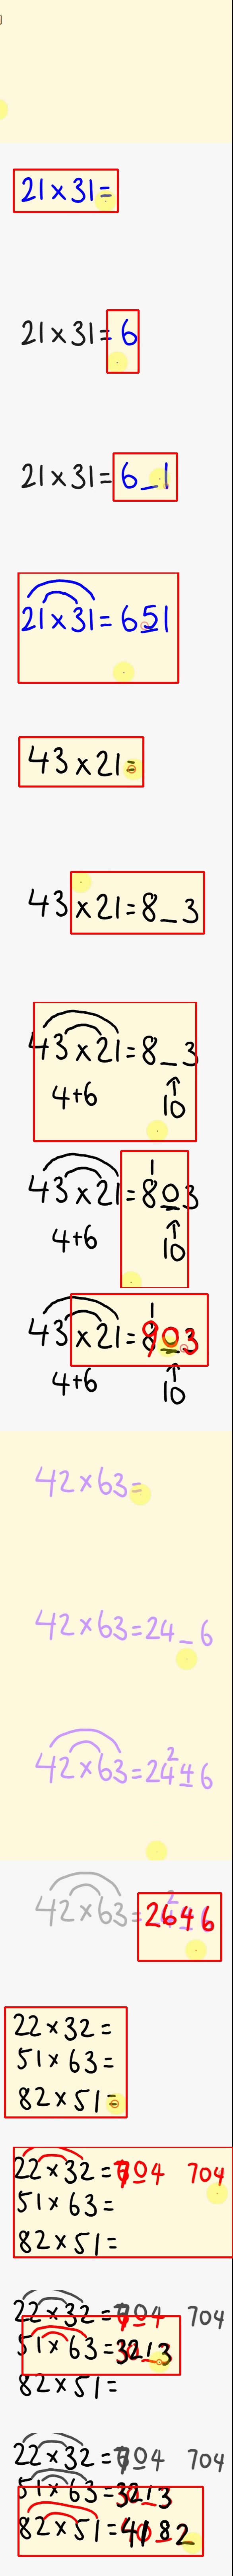 21×31=
21×31=6
21×31=6_1
21×31=651
43×21=
43×21=8_3
43×21=8_3
4+6 ↑
10
1
43×21=803
4+6 ↑
10
1
43×21=903
4+6 ↑
10
42×63=
42×63=24_6
2
42×63=2446
42×63=2646
22×32=
51×63=
82×51=
22×32=704 704
51×63=
82×51=
22×32=704 704
51×63=3213
82×51=
22×32=704 704
51×63=3213
82×51=4182